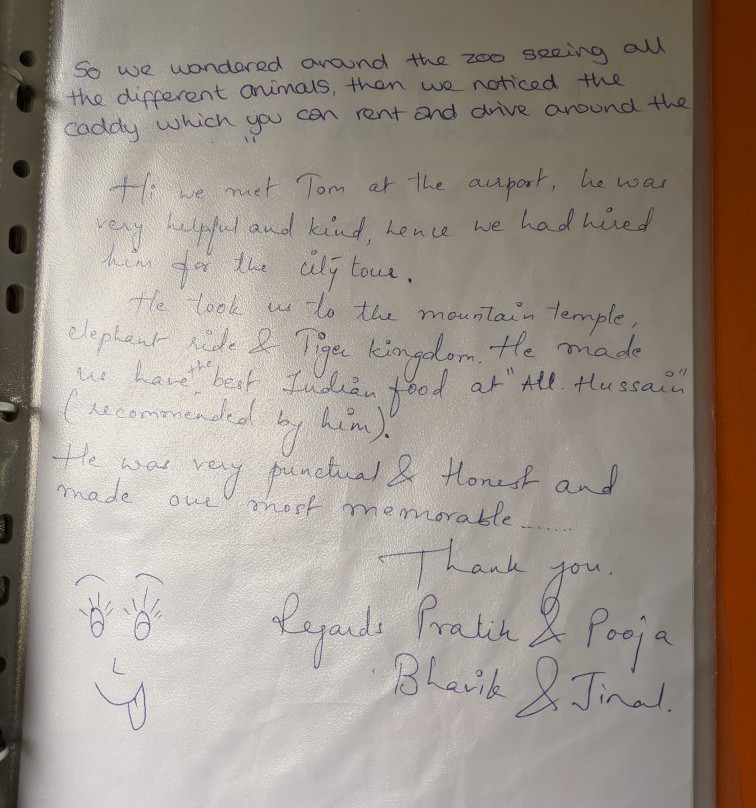 So we wondered around the zoo seeing all
the different animals, then we noticed the
caddy which you can rent and drive around the
Hi we met Tom at the airport, he was
very helpful and kind, hence we had hired
him for the city tour.
He took us to the mountain temple,
elephant ride & Tiger kingdom. He made
us have the best Indian food at "All. Hussain"
(recommended by him).
He was very punctual & Honest and
made our most memorable.......
Thank you.
Regards Pratik & Pooja
Bhavik & Jinal.